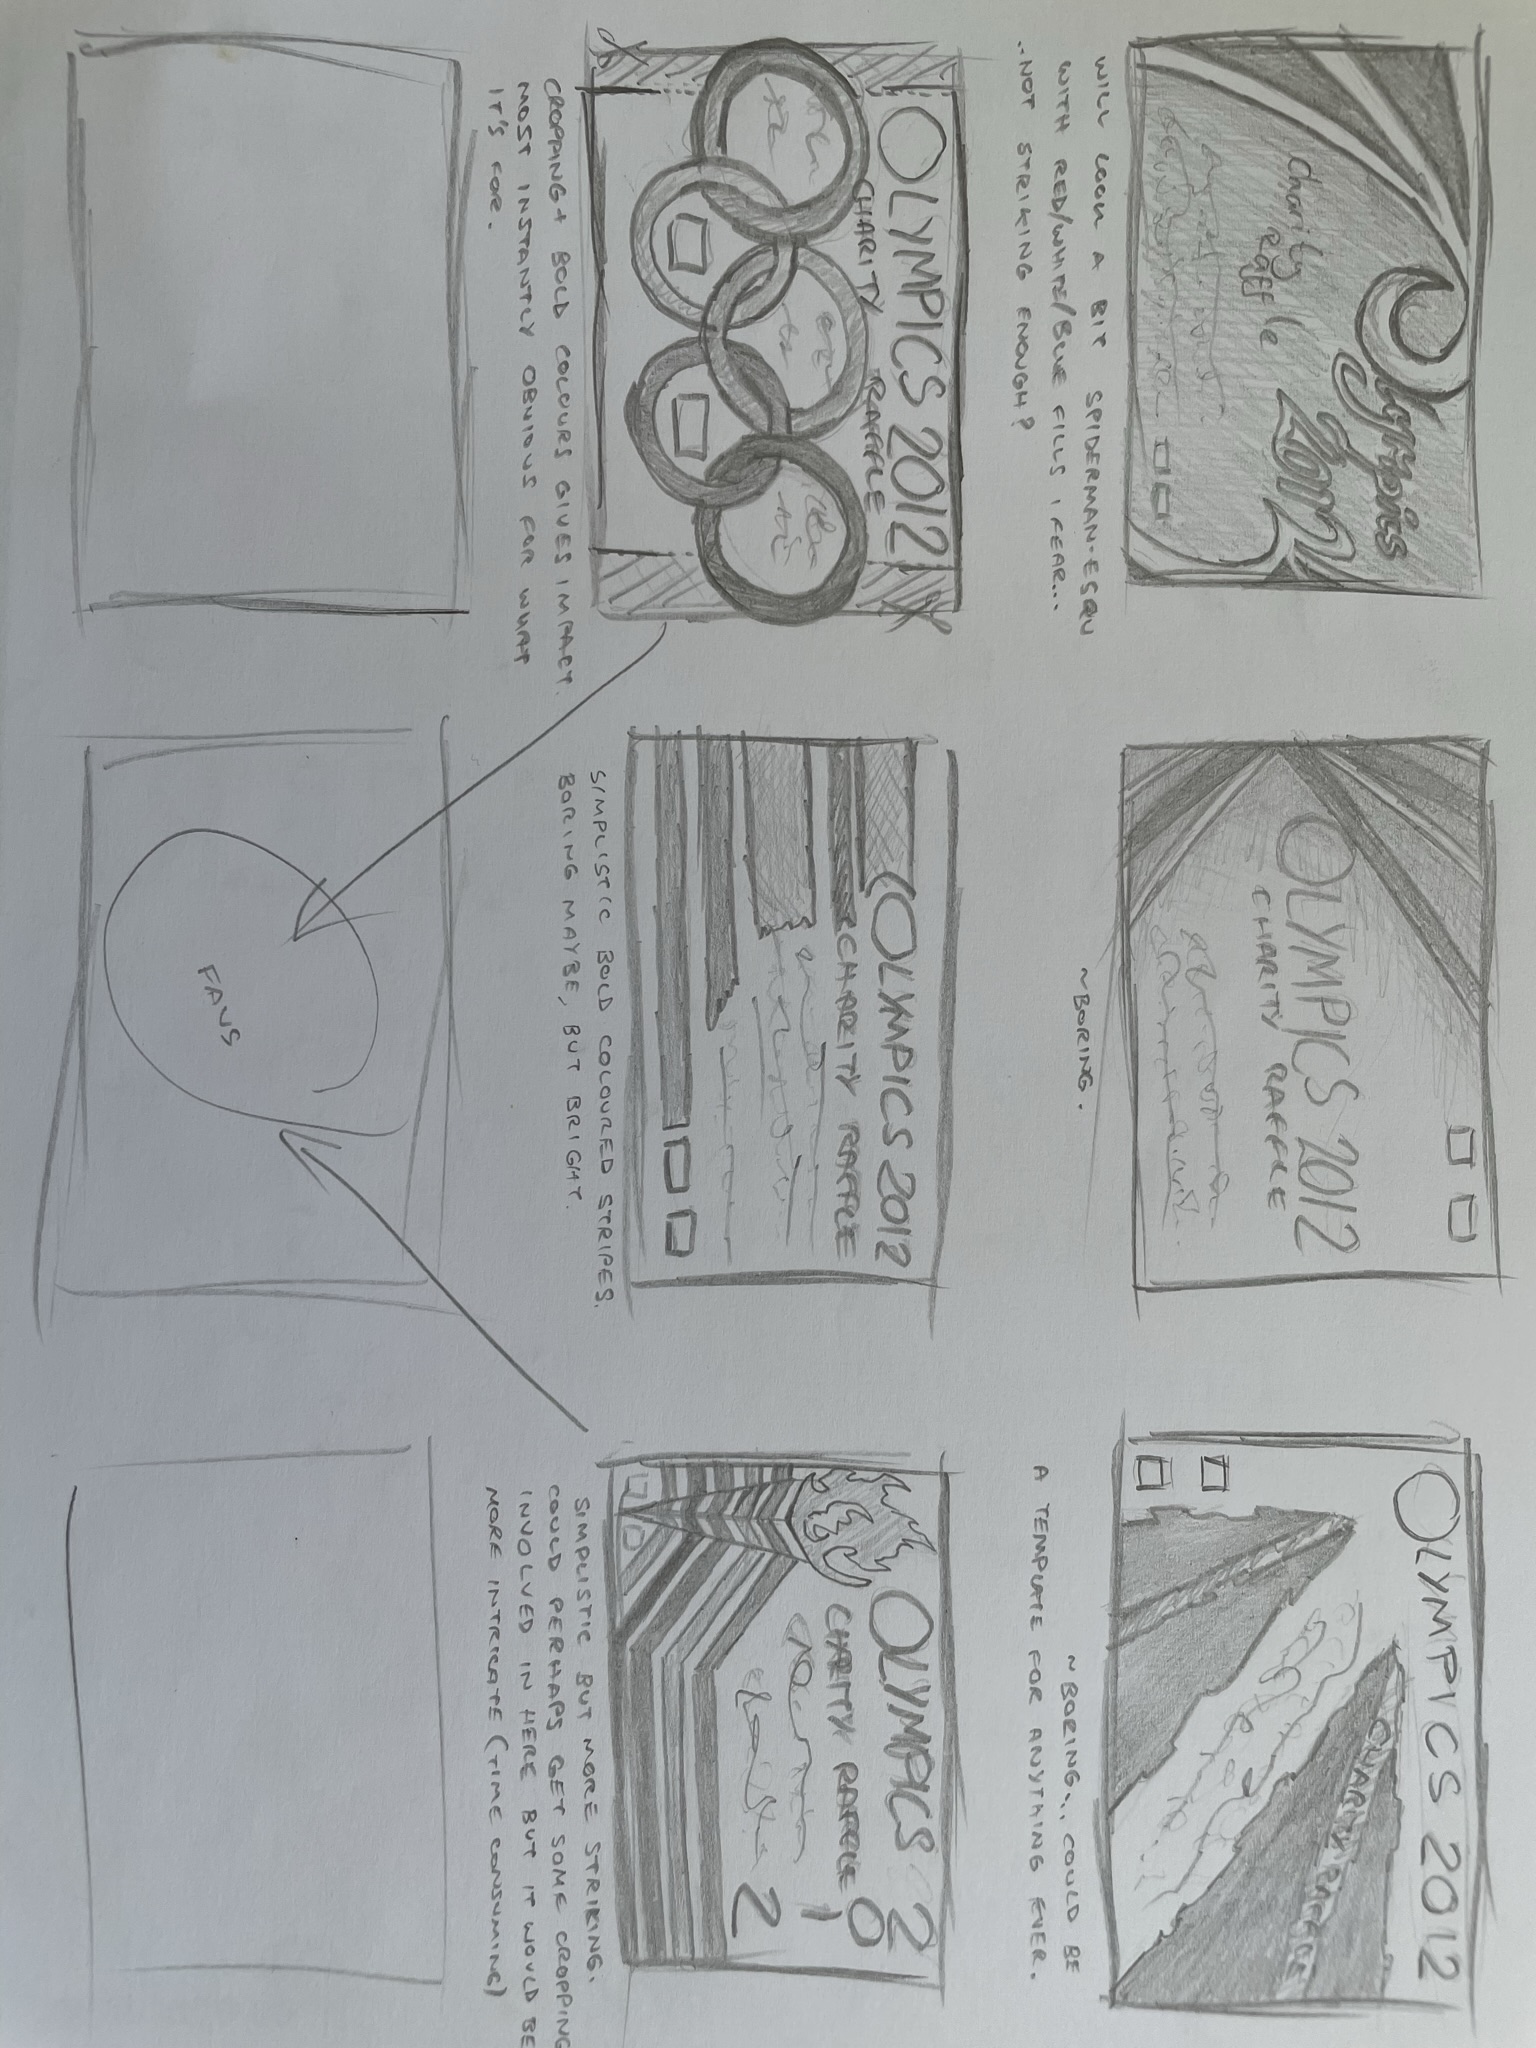 Olympics
2012
Charity
Raffle
WILL LOOK A BIT SPIDERMAN-ESQU
WITH RED/WHITE/BLUE FILLS I FEAR...
..NOT STRIKING ENOUGH?
OLYMPICS 2012
CHARITY RAFFLE
~BORING.
OLYMPICS 2012
CHARITY RAFFLE
~BORING... COULD BE
A TEMPLATE FOR ANYTHING EVER.
OLYMPICS 2012
CHARITY RAFFLE
CROPPING + BOLD COLOURS GIVES IMPACT.
MOST INSTANTLY OBVIOUS FOR WHAT
IT'S FOR.
OLYMPICS 2012
CHARITY RAFFLE
SIMPLISTIC BOLD COLOURED STRIPES.
BORING MAYBE, BUT BRIGHT.
OLYMPICS
2012
CHARITY RAFFLE
SIMPLISTIC BUT MORE STRIKING.
COULD PERHAPS GET SOME CROPPING
INVOLVED IN HERE BUT IT WOULD BE
MORE INTRICATE (TIME CONSUMING)
FAVS